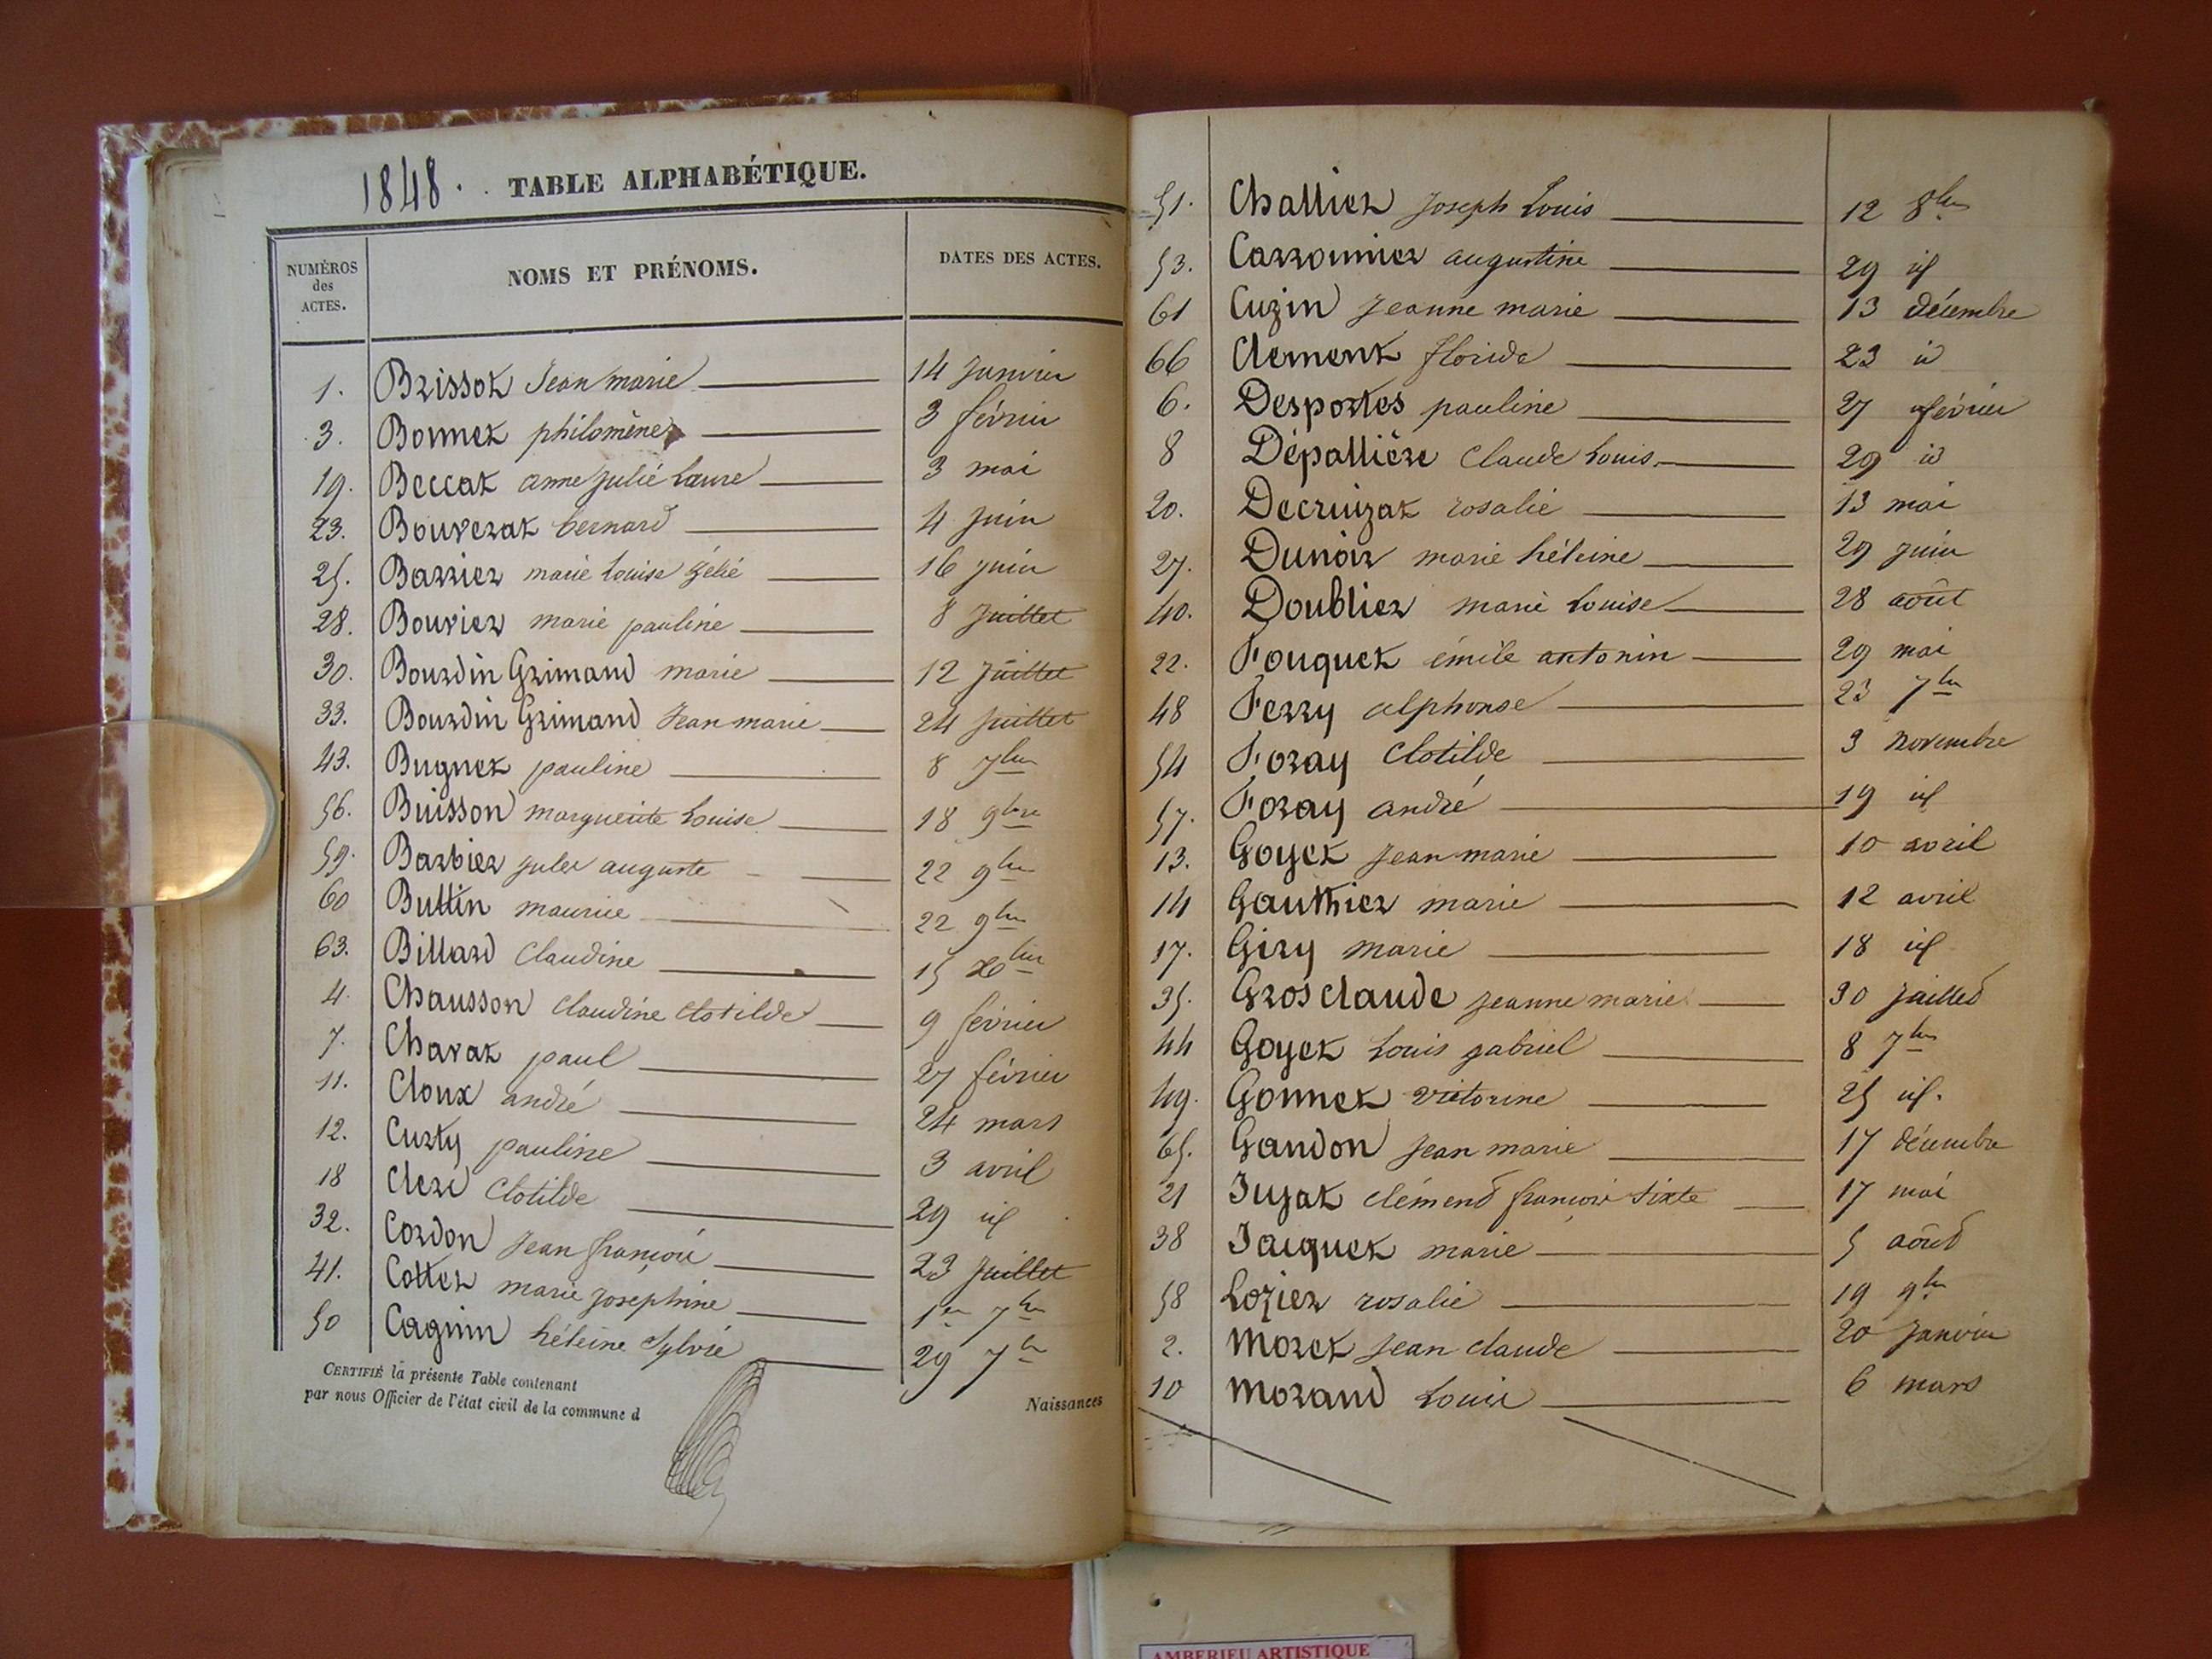 1848. TABLE ALPHABÉTIQUE.
NUMÉROS des ACTES. NOMS ET PRÉNOMS. DATES DES ACTES.
1. Brissot Jean marie 14 Janvier
3. Bonnet philomène 3 février
19. Beccat anne Julie Laure 3 mai
23. Bouverat bernard 4 Juin
25. Barrier marie Louise Zélie 16 Juin
28. Bouvier marie pauline 8 Juillet
30. Bourdin Grimaud marie 12 Juillet
33. Bourdin Grimaud Jean marie 24 Juillet
43. Bugnet pauline 8 7bre
56. Buisson marguerite Louise 18 9bre
59. Barbier Jules auguste 22 9bre
60 Buttin maurice 22 9bre
63. Billard Claudine 15 Xbre
4. Chausson Claudine Clotilde 9 février
7. Chavat paul 27 février
11. Cloux andré 24 mars
12. Curty pauline 3 avril
18 Clerc Clotilde 29 id
32. Cordon Jean françois 23 Juillet
41. Cottet marie Joséphine 1er 7bre
50 Cagnin héleine Sylvie 29 7bre
CERTIFIÉ la présente Table contenant
par nous Officier de l'état civil de la commune d
Naissances
51. Challier Joseph Louis 12 8bre
53. Carronnier augustine 29 id
61 Cuzin Jeanne marie 13 décembre
66 Clement floride 23 id
6. Desportes pauline 27 février
8 Dépallière Claude Louis 29 id
20. Decruizat rosalie 13 mai
27. Dunoir marie héleine 29 Juin
40. Doublier marie Louise 28 août
22. Fouquet émile antonin 29 mai
48 Ferry alphonse 23 7bre
54 Foray Clotilde 3 novembre
57. Foray andré 19 id
13. Goyet Jean marie 10 avril
14 Gauthier marie 12 avril
17. Giry marie 18 id
35. Grosclaude Jeanne marie 30 Juillet
44 Goyet Louis gabriel 8 7bre
49. Gonnet victorine 25 id.
65. Gandon Jean marie 17 décembre
21 Jujat clément françois Sixte 17 mai
38 Jacquet marie 5 août
58 Lozier rosalie 19 9bre
2. Moret Jean claude 20 Janvier
10 Morand Louis 6 mars
AMBERIEU ARTISTIQUE